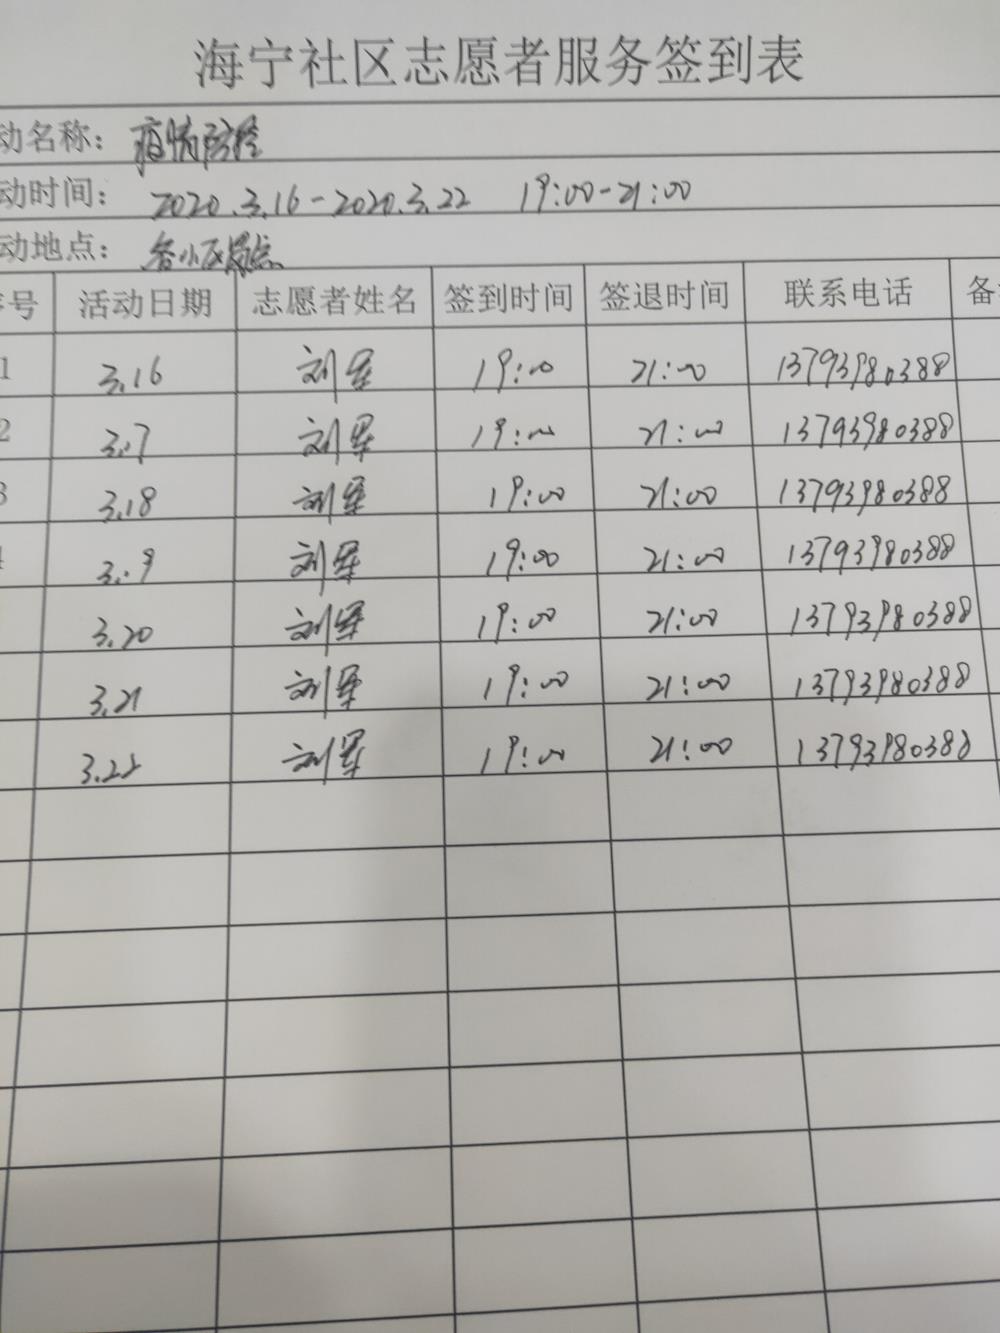 海宁社区志愿者服务签到表
动名称：疫情防控
动时间：2020.3.16-2020.3.22 19:00-21:00
动地点：各小区
号 活动日期 志愿者姓名 签到时间 签退时间 联系电话 备
1 3.16 刘军 19:00 21:00 13793980388
2 3.17 刘军 19:00 21:00 13793980388
3 3.18 刘军 19:00 21:00 13793980388
4 3.19 刘军 19:00 21:00 13793980388
3.20 刘军 19:00 21:00 13793980388
3.21 刘军 19:00 21:00 13793980388
3.22 刘军 19:00 21:00 13793980388